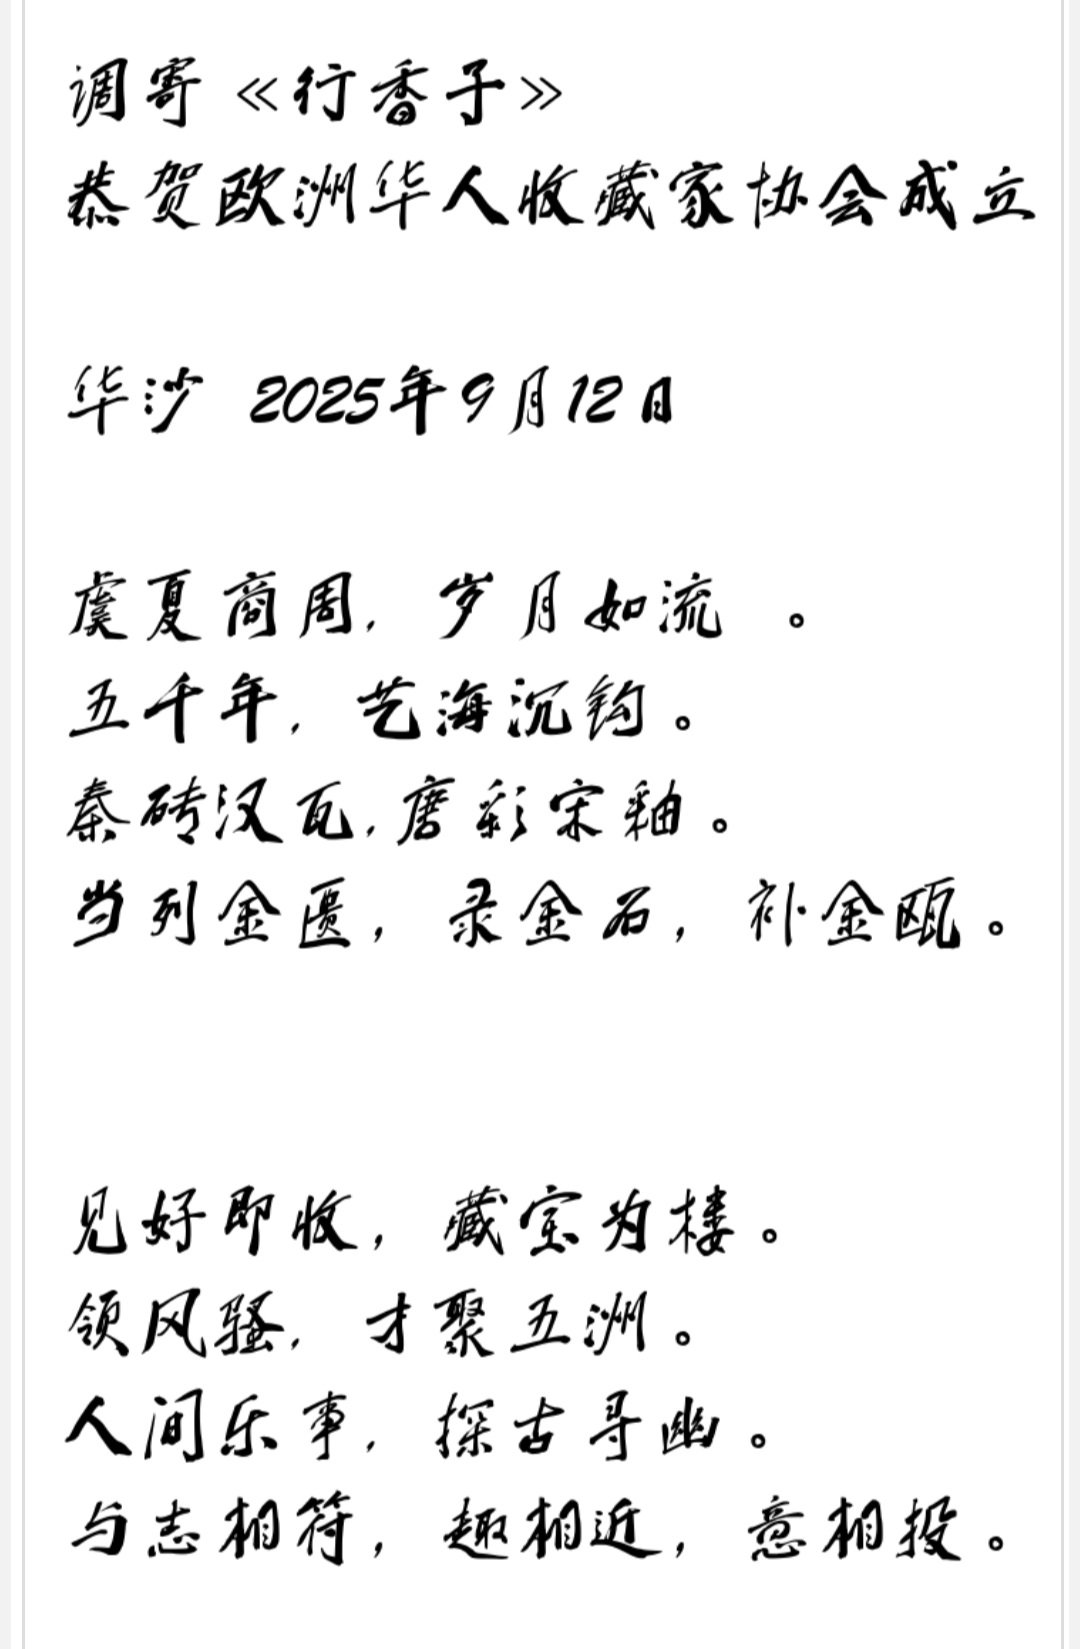 调寄《行香子》
恭贺欧洲华人收藏家协会成立
华沙 2025年9月12日
虞夏商周，岁月如流 。
五千年，艺海沉钩。
秦砖汉瓦,唐彩宋釉。
当列金匮，录金石，补金瓯。
见好即收，藏宝为楼。
领风骚，才聚五洲。
人间乐事，探古寻幽。
与志相符，趣相近，意相投。